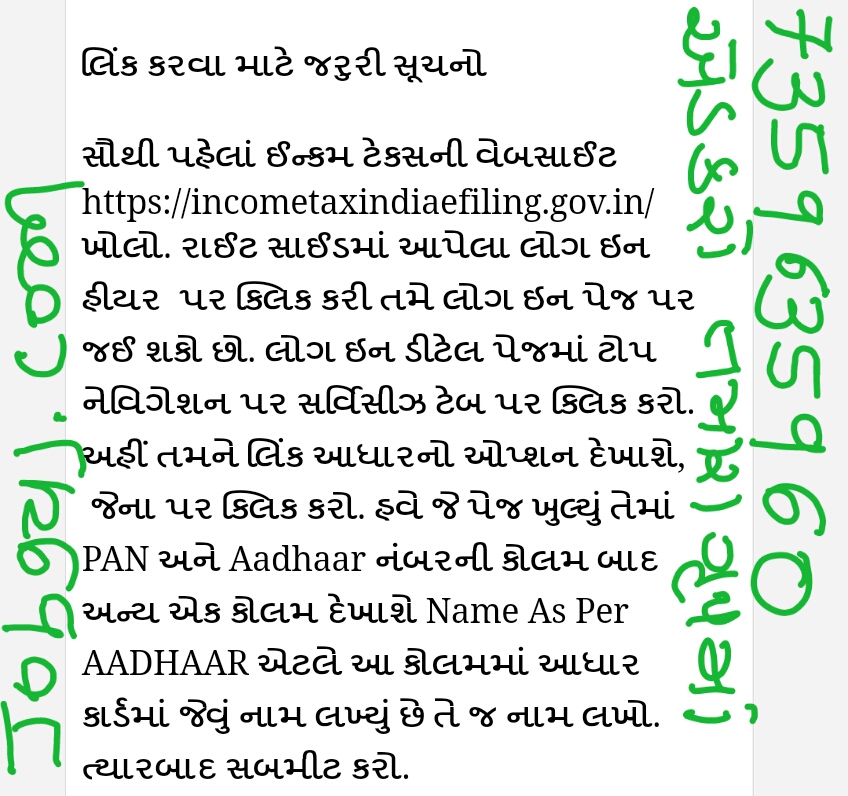 લિંક કરવા માટે જરુરી સૂચનો
સૌથી પહેલાં ઈન્કમ ટેકસની વેબસાઈટ
https://incometaxindiaefiling.gov.in/
ખોલો. રાઈટ સાઈડમાં આપેલા લોગ ઇન
હીયર પર ક્લિક કરી તમે લોગ ઇન પેજ પર
જઈ શકો છો. લોગ ઇન ડીટેલ પેજમાં ટોપ
નેવિગેશન પર સર્વિસીઝ ટેબ પર ક્લિક કરો.
અહીં તમને લિંક આધારનો ઓપ્શન દેખાશે,
જેના પર ક્લિક કરો. હવે જે પેજ ખુલ્યું તેમાં
PAN અને Aadhaar નંબરની કોલમ બાદ
અન્ય એક કોલમ દેખાશે Name As Per
AADHAAR એટલે આ કોલમમાં આધાર
કાર્ડમાં જેવું નામ લખ્યું છે તે જ નામ લખો.
ત્યારબાદ સબમીટ કરો.
7359635960
એડ કરો તમારા ગ્રુપમાં